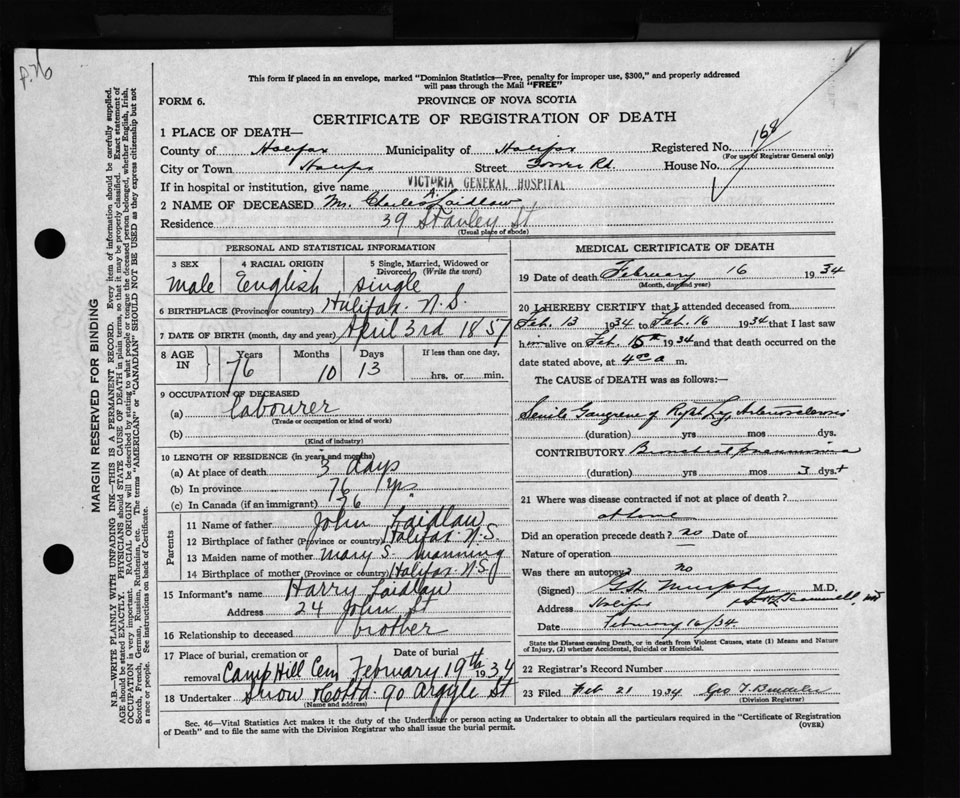 P. 76
This form if placed in an envelope, marked "Dominion Statistics—Free, penalty for improper use, $300," and properly addressed
will pass through the Mail "FREE"
FORM 6.
PROVINCE OF NOVA SCOTIA
CERTIFICATE OF REGISTRATION OF DEATH
1 PLACE OF DEATH—
County of Halifax Municipality of Halifax Registered No. 168
(For use of Registrar General only)
City or Town Halifax Street Tower Rd. House No.
If in hospital or institution, give name VICTORIA GENERAL HOSPITAL
2 NAME OF DECEASED Mr. Charles A. Laidlaw
Residence 39 Stanley St.
(Usual place of abode)
PERSONAL AND STATISTICAL INFORMATION
3 SEX 4 RACIAL ORIGIN 5 Single, Married, Widowed or
Divorced (Write the word)
Male English single
6 BIRTHPLACE (Province or country) Halifax N.S.
7 DATE OF BIRTH (month, day and year) April 3rd 1857
8 AGE IN Years Months Days If less than one day,
76 10 13 hrs. or min.
9 OCCUPATION OF DECEASED
(a) labourer
(Trade or occupation or kind of work)
(b)
(Kind of industry)
10 LENGTH OF RESIDENCE (in years and months)
(a) At place of death 3 days
(b) In province 76 yrs
(c) In Canada (if an immigrant) 76 "
Parents
11 Name of father John Laidlaw
12 Birthplace of father (Province or country) Halifax N.S.
13 Maiden name of mother Mary S. Manning
14 Birthplace of mother (Province or country) Halifax N.S.
15 Informant's name Harry Laidlaw
Address 24 John St
16 Relationship to deceased brother
17 Place of burial, cremation or removal Date of burial
Camp Hill Cem February 19th 1934
18 Undertaker Snow & Co Ltd. 90 Argyle St
(Name and address)
MEDICAL CERTIFICATE OF DEATH
19 Date of death February 16 1934
(Month, day and year)
20 I HEREBY CERTIFY that I attended deceased from
Feb. 13 1934 to Feb. 16 1934 that I last saw
h alive on Feb. 15th 1934 and that death occurred on the
date stated above, at 4 a m.
The CAUSE OF DEATH was as follows:—
Senile Gangrene of Right Leg, Arteriosclerosis
(duration) yrs mos dys.
CONTRIBUTORY Bronchial Pneumonia
(duration) yrs mos 3 dys +
21 Where was disease contracted if not at place of death?
at home
Did an operation precede death? no Date of
Nature of operation
Was there an autopsy? no
(Signed) G.H. Murphy M.D.
Address Halifax
Date February 16/34
State the Disease causing Death, or in death from Violent Causes, state (1) Means and Nature
of Injury, (2) whether Accidental, Suicidal or Homicidal.
22 Registrar's Record Number
23 Filed Feb 21 1934 Geo T.
(Division Registrar)
Sec. 46—Vital Statistics Act makes it the duty of the Undertaker or person acting as Undertaker to obtain all the particulars required in the "Certificate of Registration
of Death" and to file the same with the Division Registrar who shall issue the burial permit.
(OVER)
MARGIN RESERVED FOR BINDING
N.B—WRITE PLAINLY WITH UNFADING INK—THIS IS A PERMANENT RECORD. Every item of information should be carefully supplied.
AGE should be stated EXACTLY. PHYSICIANS should STATE CAUSE OF DEATH in plain terms, so that it may be properly classified. Exact statement of
OCCUPATION is very important. RACIAL ORIGIN will be described by stating to what people or tongue the deceased person belonged, whether English, Irish,
Scotch, French, German, Russian, Ruthenian, etc. The terms "AMERICAN" or "CANADIAN" SHOULD NOT BE USED as they express citizenship but not
a race or people. See instructions on back of Certificate.